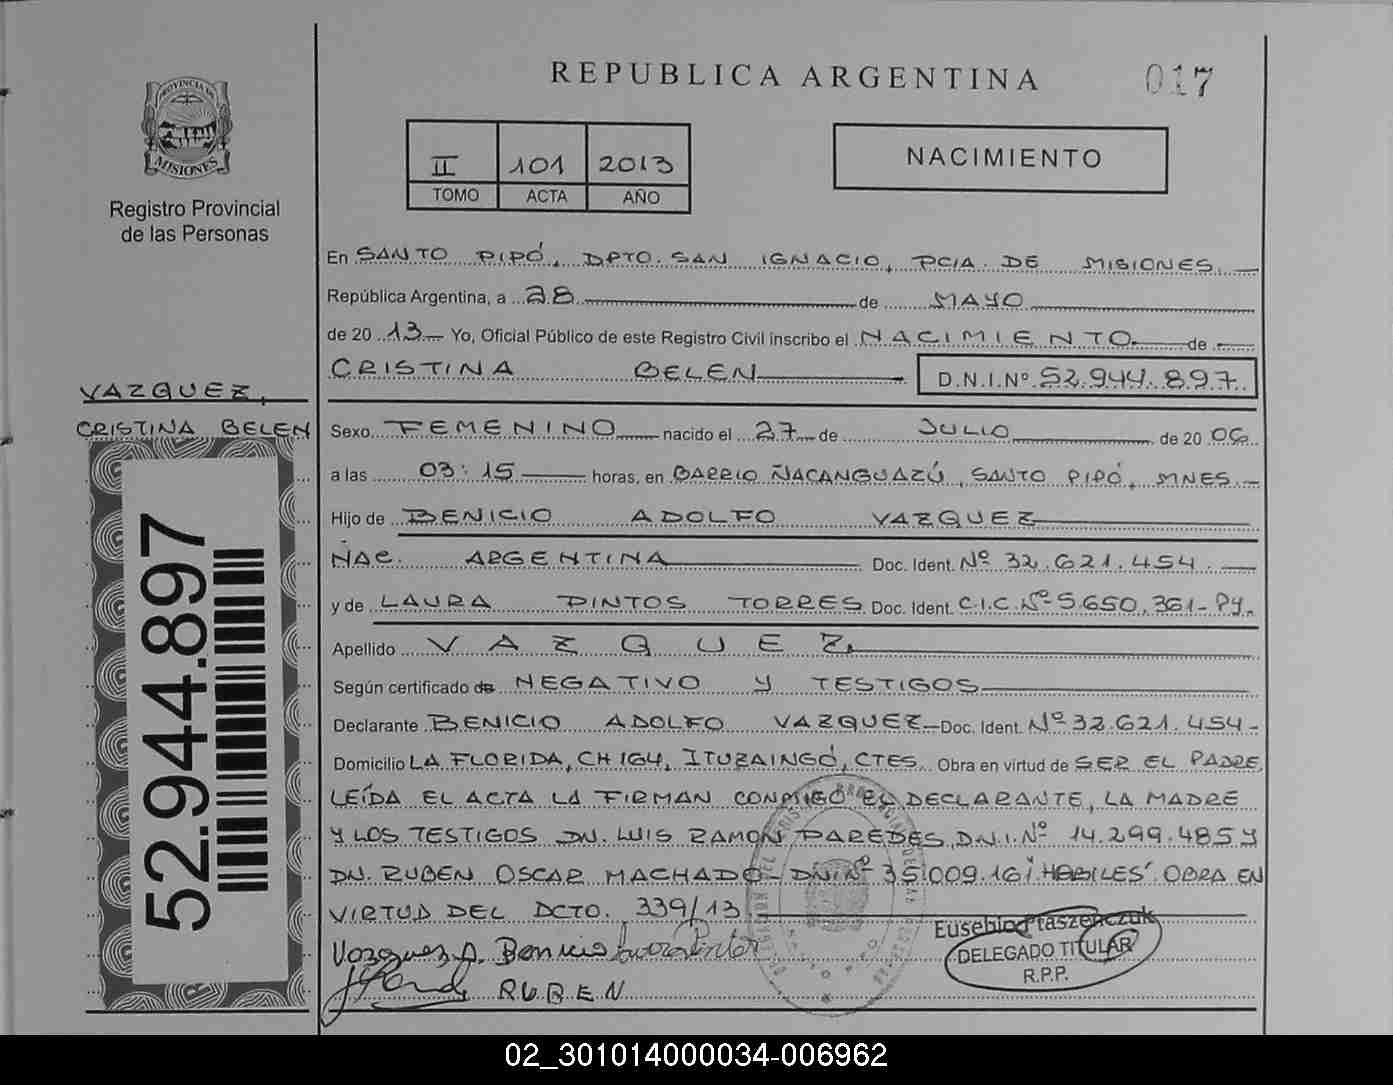 REPUBLICA ARGENTINA
017
PROVINCIA DE
MISIONES
Registro Provincial
de las Personas
II 101 2013
TOMO ACTA AÑO
NACIMIENTO
En SANTO PIPÓ, DPTO. SAN IGNACIO, PCIA. DE MISIONES.
República Argentina, a 28 de MAYO
de 20 13 Yo, Oficial Público de este Registro Civil inscribo el NACIMIENTO de
CRISTINA BELEN D.N.I.Nº 52.944.897
VAZQUEZ,
CRISTINA BELEN
Sexo FEMENINO nacido el 27 de JULIO de 20 06
a las 03:15 horas, en BARRIO ÑACANGUAZÚ, SANTO PIPÓ, MNES.
Hijo de BENICIO ADOLFO VAZQUEZ
NAC. ARGENTINA Doc. Ident. Nº 32.621.454.
y de LAURA PINTOS TORRES Doc. Ident. C.I.C. Nº 5.650.361- PY.
Apellido VAZQUEZ
Según certificado de NEGATIVO Y TESTIGOS
Declarante BENICIO ADOLFO VAZQUEZ Doc. Ident. Nº 32.621.454-
Domicilio LA FLORIDA, CH 164, ITUZAINGÓ, CTES. Obra en virtud de SER EL PADRE
LEÍDA EL ACTA LA FIRMAN CONMIGO EL DECLARANTE, LA MADRE
Y LOS TESTIGOS DN. LUIS RAMON PAREDES, D.N.I. Nº 14.299.485 Y
DN. RUBEN OSCAR MACHADO- DNI Nº 35.009.161. HABILES. OBRA EN
VIRTUD DEL DCTO. 339/13
Vazquez A. Benicio Laura Pintos
RUBEN
Eusebio Ptaszenczuk
DELEGADO TITULAR
R.P.P.
52.944.897
02_301014000034-006962